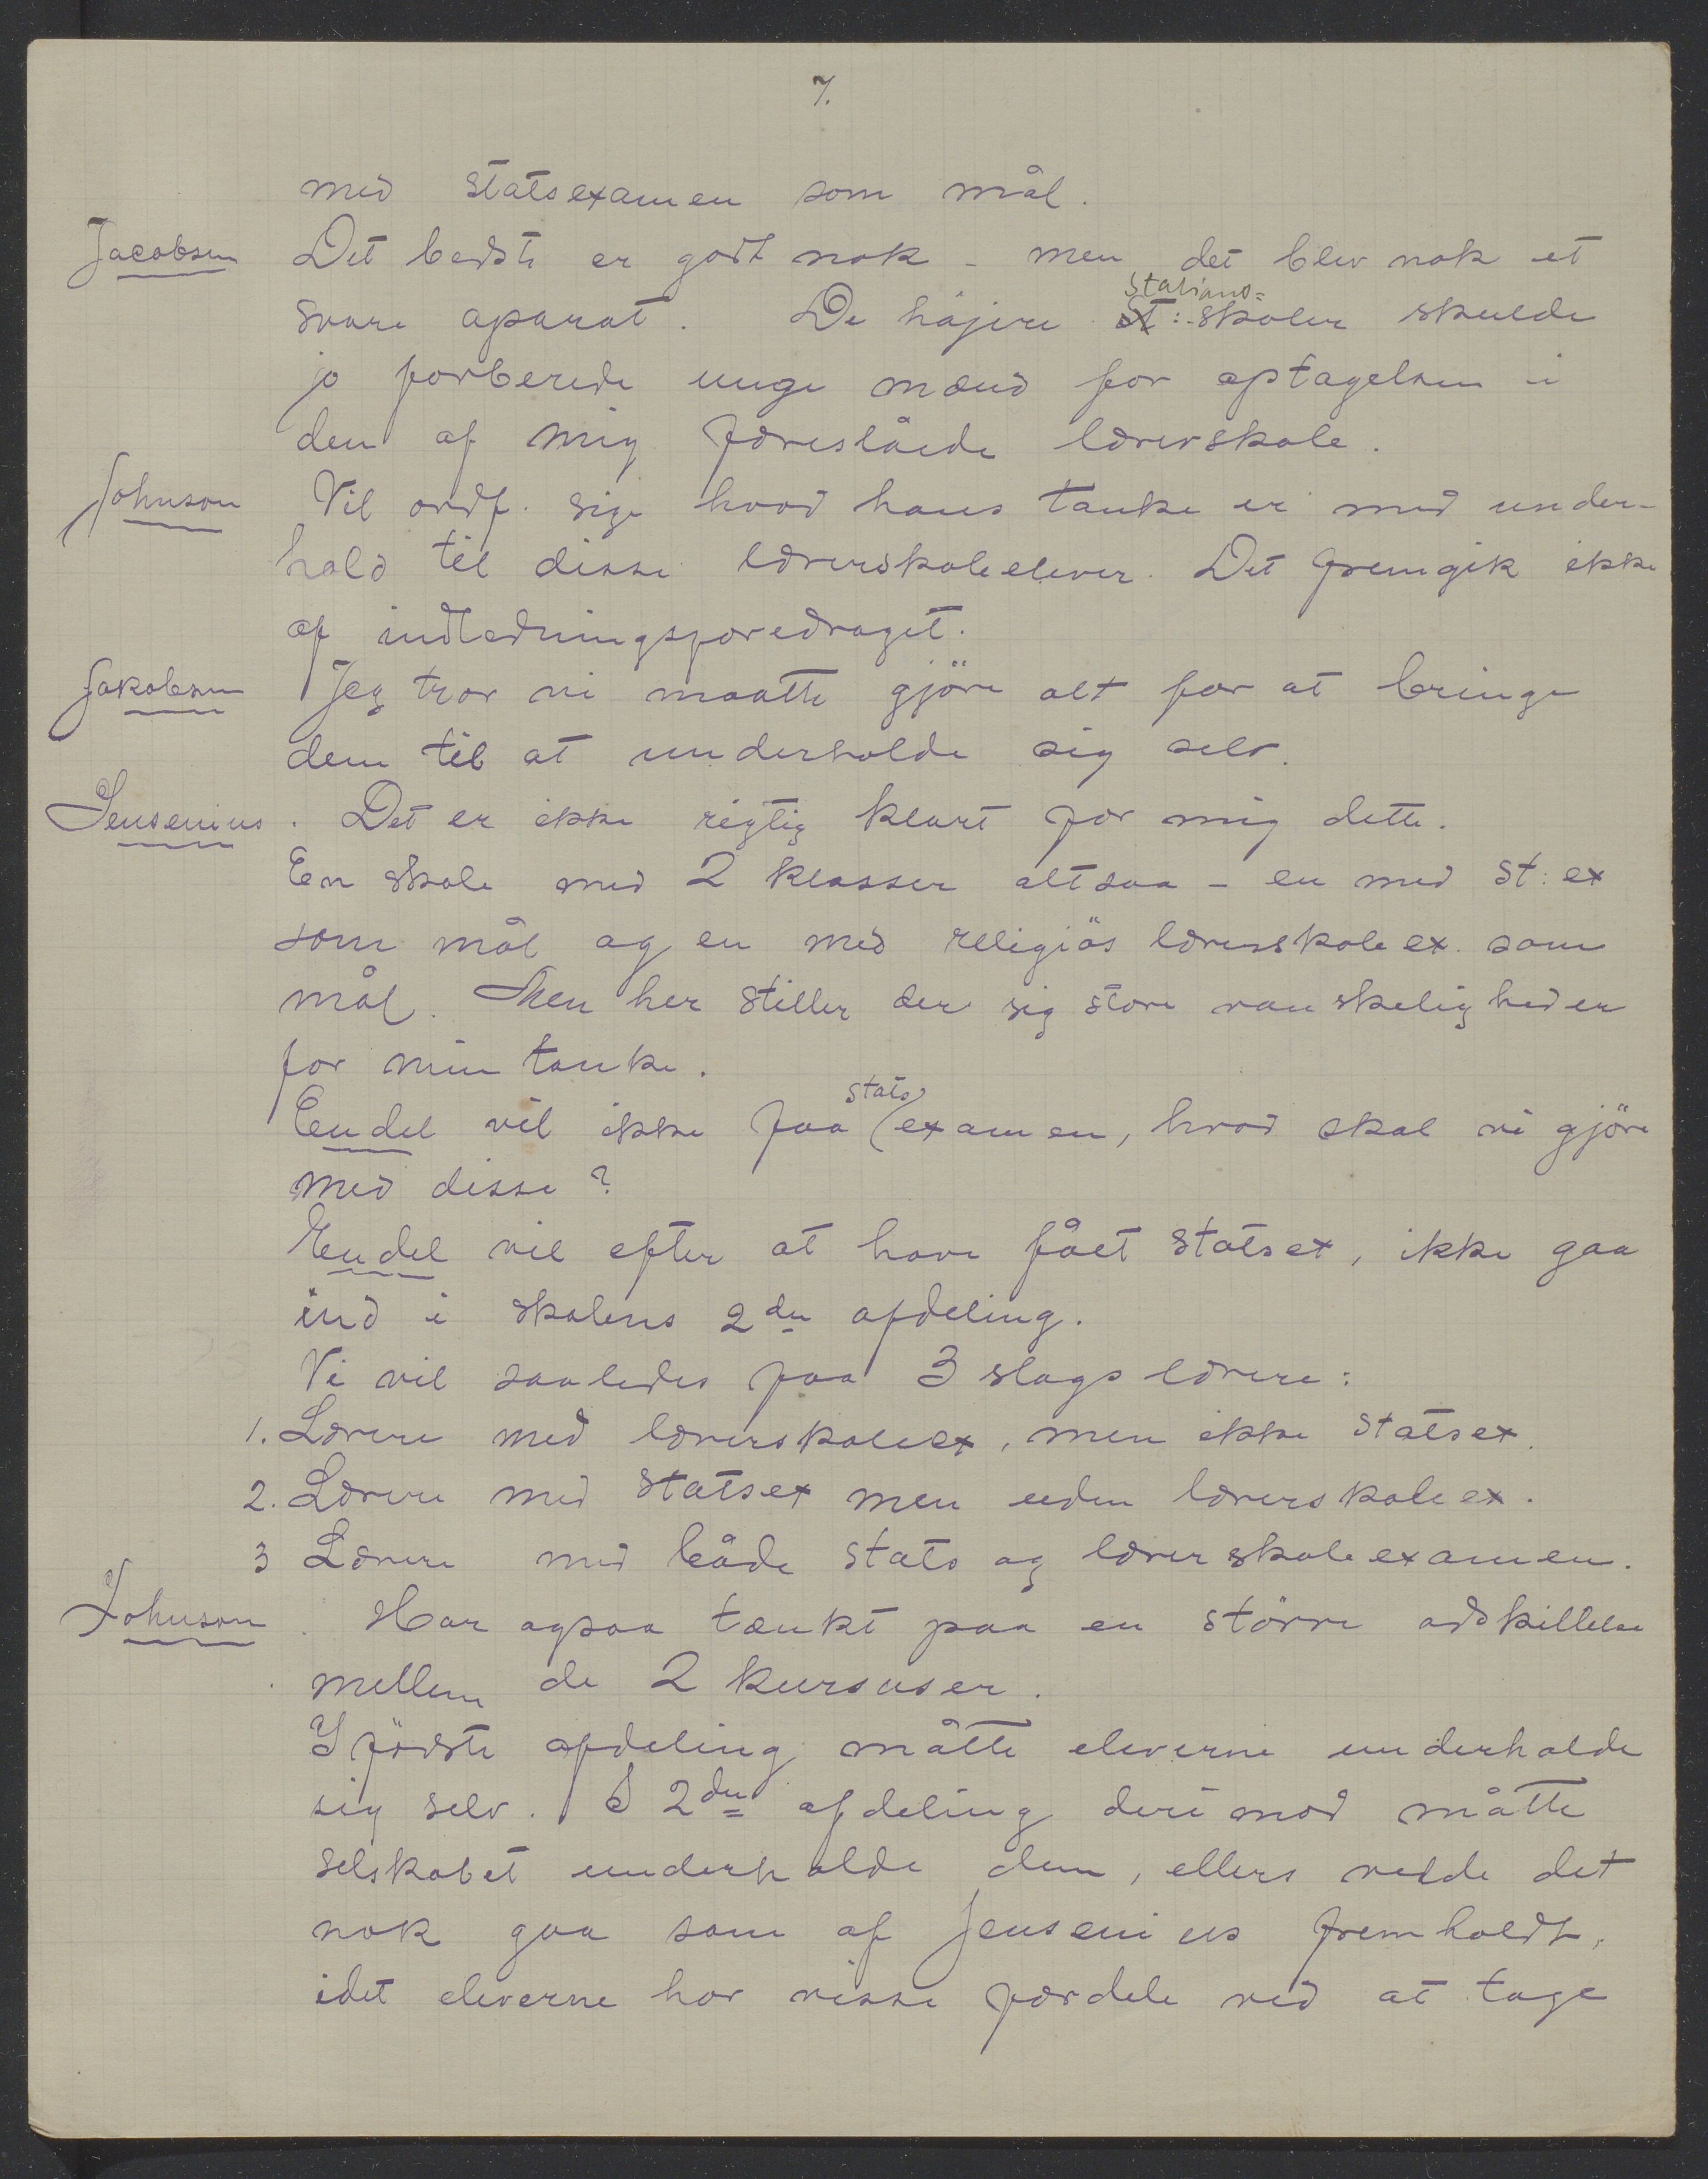 7.
med statsexamen som mål.
Jacobsen Det bedste er godt nok - men det blev nok et
stations=
svare aparat. De höjere St:-skoler skulde
jo forberede unge mænd for optagelsen i
den af mig foreslåede lærerskole.
Johnson Vil ordf. sige hvad hans tanke er med under-
hold til disse lærerskoleelever. Det fremgik ikke
af indledningsforedraget.
Jakobsen Jeg tror vi maatte gjöre alt for at bringe
dem til at underholde sig selv.
Jensenius. Det er ikke rigtig klart for mig dette.
En skole med 2 klasser altsaa - en med St: ex
som mål og en med religiös lærerskole ex. som
mål. Men her stiller der sig store vanskeligheder
for min tanke.
stats
Endel vil ikke faa examen, hvad skal vi gjöre
med disse?
Endel vil efter at have fået statsex, ikke gaa
ind i skolens 2den afdeling.
Vi vil saaledes faa 3 slags lærere:
1. Lærere med lærerskoleex, men ikke statsex.
2. Lærere med statsex men uden lærerskole ex.
3 Lærere med både stats og lærerskoleexamen.
Johnson. Har ogsaa tænkt paa en större adskillelse
mellem de 2 kursuser.
I förste afdeling måtte eleverne underholde
sig selv. I 2den afdeling derimod måtte
selskabet underholde dem, ellers vilde det
nok gaa som af Jensenius fremholdt,
idet eleverne har visse fordele ved at tage